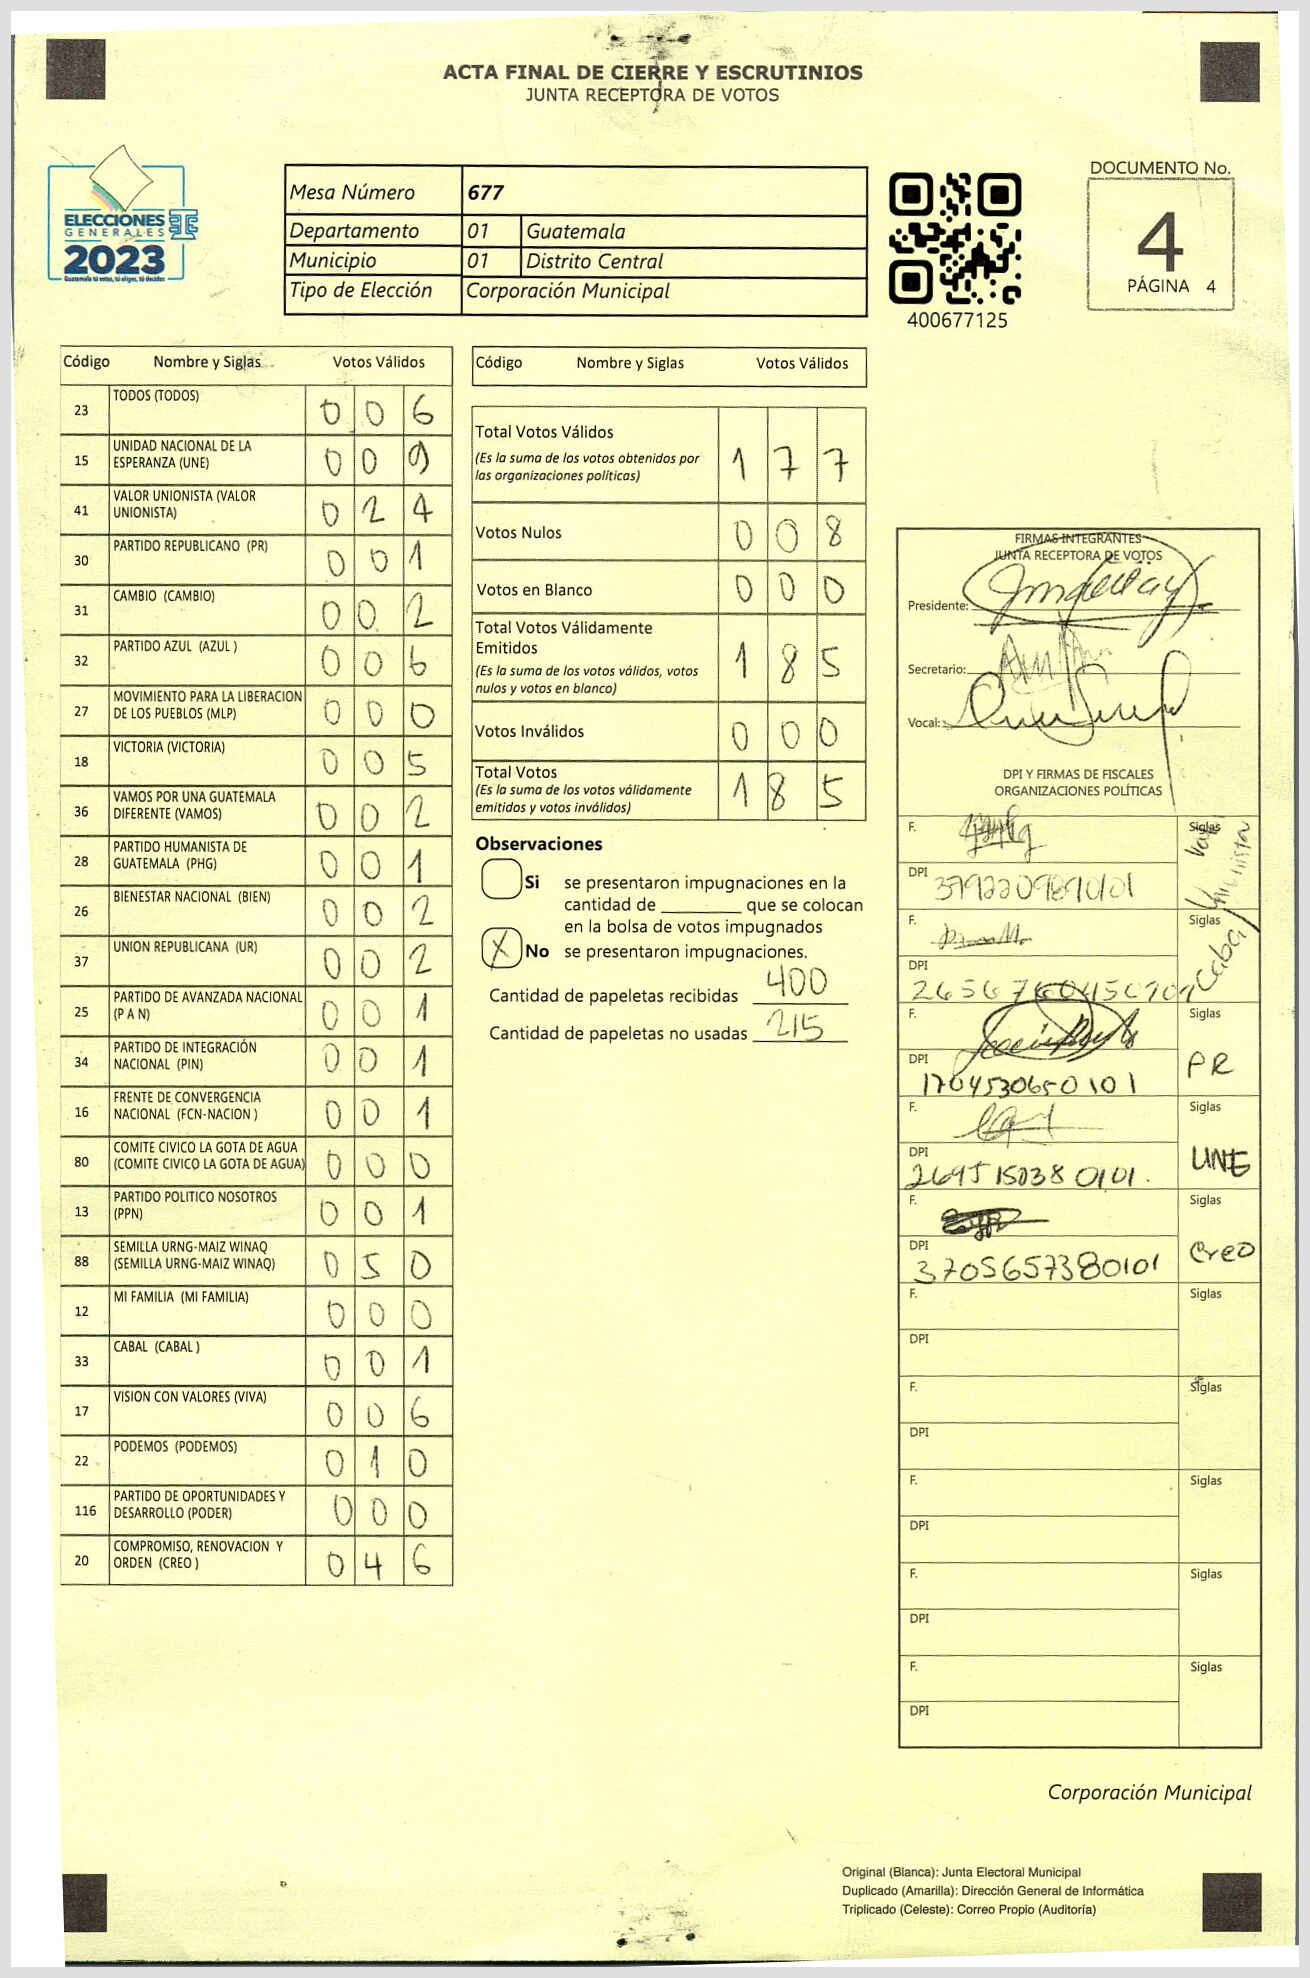 ACTA FINAL DE CIERRE Y ESCRUTINIOS
JUNTA RECEPTORA DE VOTOS
ELECCIONES
GENERALES
2023
Guatemala tú votas, tú eliges, tú decides
Mesa Número 677
Departamento 01 Guatemala
Municipio 01 Distrito Central
Tipo de Elección Corporación Municipal
400677125
DOCUMENTO No.
4
PÁGINA 4
Código Nombre y Siglas Votos Válidos
23 TODOS (TODOS) 0 0 6
15 UNIDAD NACIONAL DE LA ESPERANZA (UNE) 0 0 9
41 VALOR UNIONISTA (VALOR UNIONISTA) 0 2 4
30 PARTIDO REPUBLICANO (PR) 0 0 1
31 CAMBIO (CAMBIO) 0 0 2
32 PARTIDO AZUL (AZUL ) 0 0 6
27 MOVIMIENTO PARA LA LIBERACION DE LOS PUEBLOS (MLP) 0 0 0
18 VICTORIA (VICTORIA) 0 0 5
36 VAMOS POR UNA GUATEMALA DIFERENTE (VAMOS) 0 0 2
28 PARTIDO HUMANISTA DE GUATEMALA (PHG) 0 0 1
26 BIENESTAR NACIONAL (BIEN) 0 0 2
37 UNION REPUBLICANA (UR) 0 0 2
25 PARTIDO DE AVANZADA NACIONAL (P A N) 0 0 1
34 PARTIDO DE INTEGRACIÓN NACIONAL (PIN) 0 0 1
16 FRENTE DE CONVERGENCIA NACIONAL (FCN-NACION ) 0 0 1
80 COMITE CIVICO LA GOTA DE AGUA (COMITE CIVICO LA GOTA DE AGUA) 0 0 0
13 PARTIDO POLITICO NOSOTROS (PPN) 0 0 1
88 SEMILLA URNG-MAIZ WINAQ (SEMILLA URNG-MAIZ WINAQ) 0 5 0
12 MI FAMILIA (MI FAMILIA) 0 0 0
33 CABAL (CABAL ) 0 0 1
17 VISION CON VALORES (VIVA) 0 0 6
22 PODEMOS (PODEMOS) 0 1 0
116 PARTIDO DE OPORTUNIDADES Y DESARROLLO (PODER) 0 0 0
20 COMPROMISO, RENOVACION Y ORDEN (CREO ) 0 4 6
Código Nombre y Siglas Votos Válidos
Total Votos Válidos 1 7 7
(Es la suma de los votos obtenidos por
las organizaciones políticas)
Votos Nulos 0 0 8
Votos en Blanco 0 0 0
Total Votos Válidamente
Emitidos 1 8 5
(Es la suma de los votos válidos, votos
nulos y votos en blanco)
Votos Inválidos 0 0 0
Total Votos 1 8 5
(Es la suma de los votos válidamente
emitidos y votos inválidos)
Observaciones
Si se presentaron impugnaciones en la
cantidad de ________ que se colocan
en la bolsa de votos impugnados
X No se presentaron impugnaciones.
Cantidad de papeletas recibidas 400
Cantidad de papeletas no usadas 215
FIRMAS INTEGRANTES
JUNTA RECEPTORA DE VOTOS
Presidente:
Secretario:
Vocal:
DPI Y FIRMAS DE FISCALES
ORGANIZACIONES POLÍTICAS
F. Siglas Valor Unionista
DPI 3792209890101
F. Siglas Cabal
DPI
F. Siglas PR
DPI 1704530650101
F. Siglas UNE
DPI 2695150380101.
F. Siglas Creo
DPI 3705657380101
F. Siglas
DPI
F. Siglas
DPI
F. Siglas
DPI
F. Siglas
DPI
F. Siglas
DPI
Corporación Municipal
Original (Blanca): Junta Electoral Municipal
Duplicado (Amarilla): Dirección General de Informática
Triplicado (Celeste): Correo Propio (Auditoría)